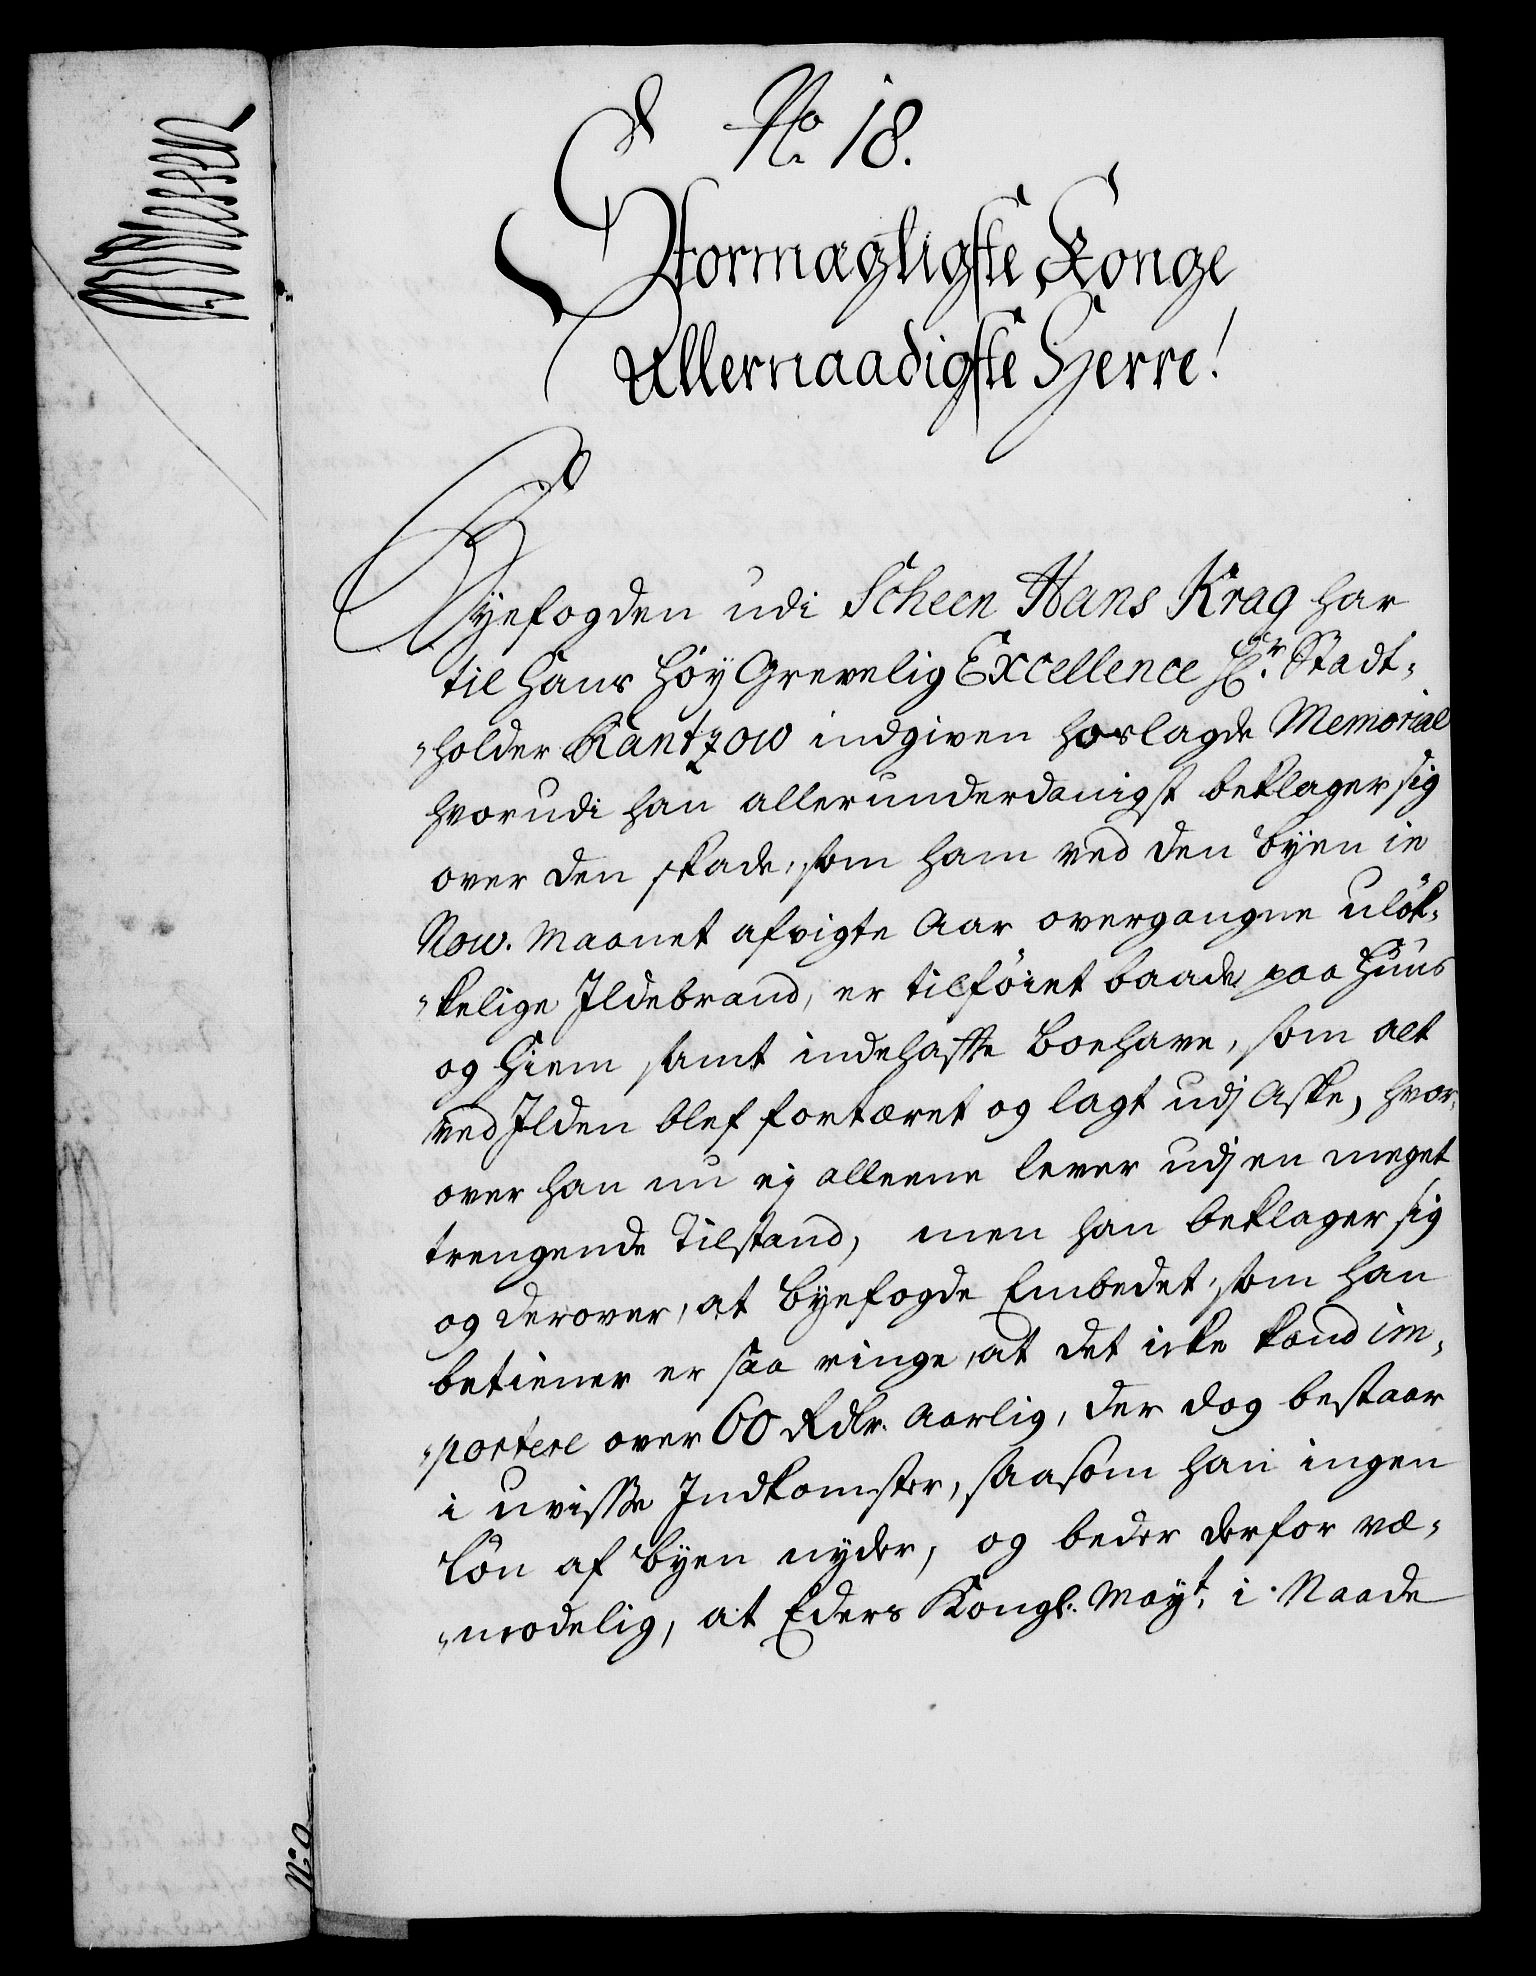 No 18.
Stormægtigste Konge
Allernaadigste Herre!
Byefogden udi Scheen Hans Krag har
til Hans Høy Grevelig Excellence Hr. Stadt-
holder Rantzow indgiven hoslagde Memorial
hvorudi han allerunderdanigst beklager sig
over den skade, som ham ved den byen in
Nov. Maanet afvigte Aar overgangne uløk-
kelige Ildebrand, er tilføiet baade paa Huus
og Hiem samt indehaffte Boehave, som alt
ved Ilden blef fortæret og lagt udj Aske, hvor-
over han nu ej alleene lever udj en meget
trengende Tilstand, men han beklager sig
og derover, at Byefogde Embedet, som han
betiener er saa ringe, at det icke kand im-
portere over 60 Rdlr. Aarlig, der dog bestaar
i uvisse Indkomster, saasom han ingen
Løn af Byen nyder, og beder derfor væ-
modelig, at Eders Kongl. Mayt. i Naade
No 9